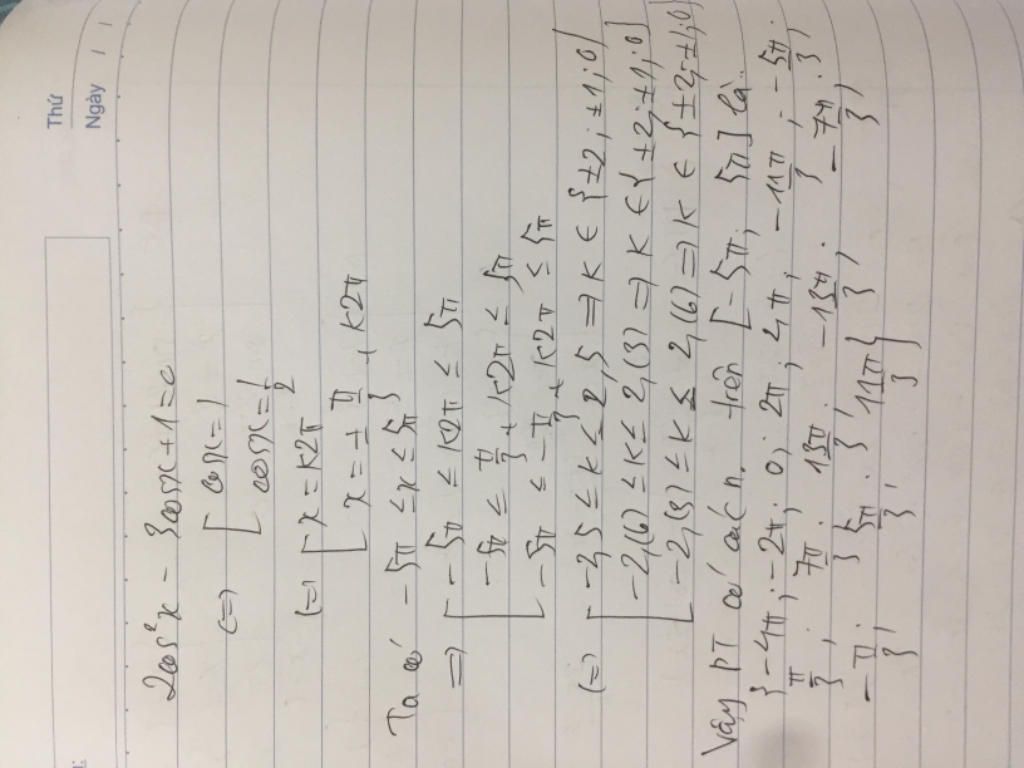 Thứ
Ngày / /
2cos²x - 3cosx + 1 = 0
(=) [ cosx = 1
cosx = 1/2
(=) [ x = k2π
x = ± π/3 + k2π
Ta có -5π ≤ x ≤ 5π
=> [ -5π ≤ k2π ≤ 5π
-5π ≤ π/3 + k2π ≤ 5π
-5π ≤ -π/3 + k2π ≤ 5π
(=) [ -2,5 ≤ k ≤ 2,5 => k ∈ {±2; ±1; 0}
-2,(6) ≤ k ≤ 2,(3) => k ∈ {±2; ±1; 0}
-2,(3) ≤ k ≤ 2,(6) => k ∈ {±2; ±1; 0}
Vậy PT có các n. trên [-5π; 5π] là
{-4π; -2π; 0; 2π; 4π; -11π/3; -5π/3;
π/3; 7π/3; 13π/3; -13π/3; -7π/3;
-π/3; 5π/3; 11π/3}